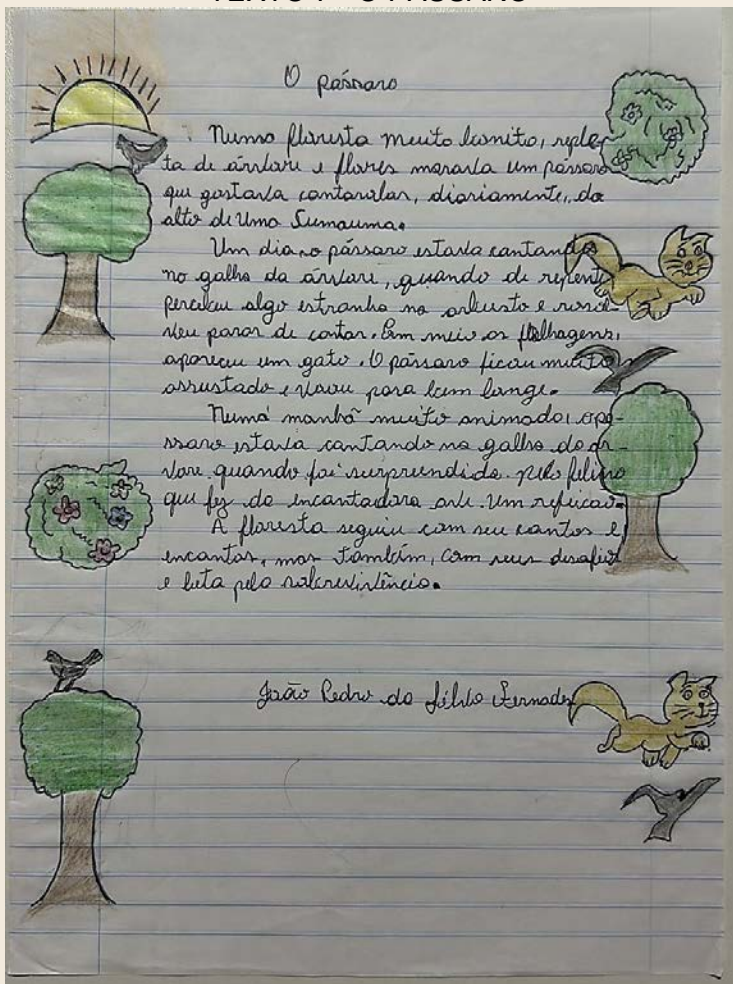 TEXTO 1 - O PÁSSARO
O pássaro
Numa floresta muito bonita, reple-
ta de árvore e flores morava um pássaro
que gostava cantarolar, diariamente, do
alto de Uma Sumauma.
Um dia o pássaro estava cantando
no galho da árvore, quando de repente
percebeu algo estranho no arbusto e resol-
veu parar de cantar. Em meio as folhagens,
apareceu um gato. O pássaro ficou muito
assustado e voou para bem longe.
Numa manhã muito animada, o pá-
ssaro estava cantando no galho da ár-
vore quando foi surpreendido pelo felino
que fez da encantadora ave um refeição.
A floresta seguiu com seu cantos e
encantos, mas também, com seus desafios
e luta pela sobrevivência.
João Pedro da Fernades